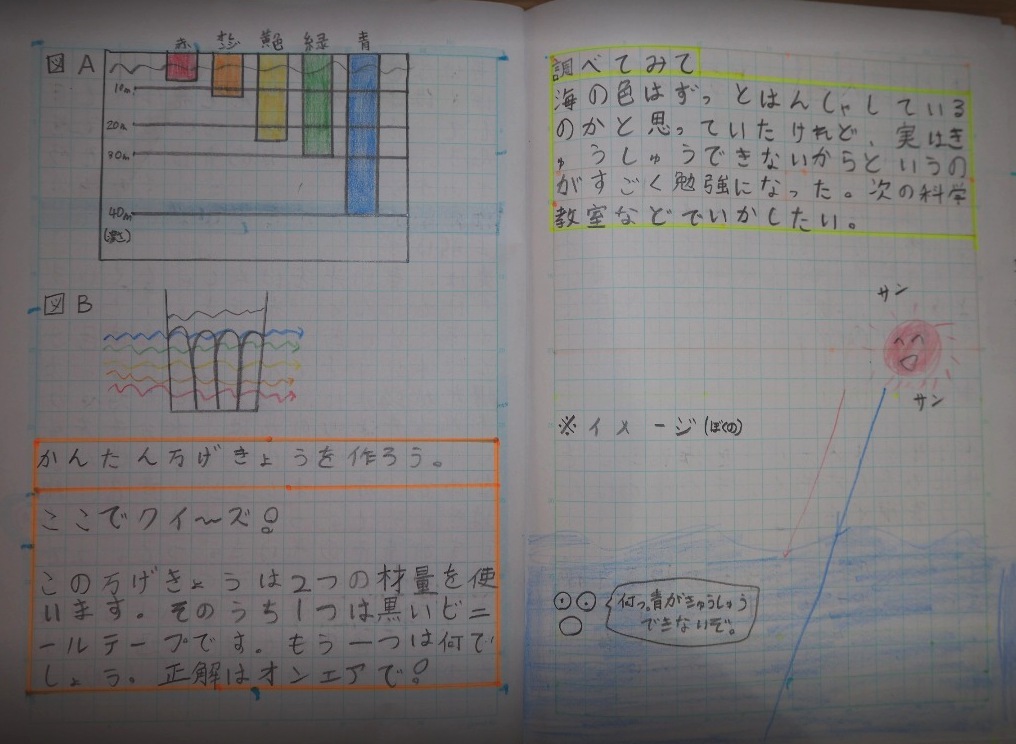 赤 オレンジ 黄色 緑 青
図 A
10m
20m
30m
40m
(深さ)
図 B
かんたん万げきょうを作ろう。
ここでクイ〜ズ!
この万げきょうは2つの材量を使
います。そのうち1つは黒いビニ
ールテープです。もう一つは何で
しょう。正解はオンエアで!
調べてみて
海の色はずっとはんしゃしている
のかと思っていたけれど、実はき
ゅうしゅうできないからというの
がすごく勉強になった。次の科学
教室などでいかしたい。
サン
サン
※イメージ(ぼくの)
何っ。青がきゅうしゅう
できないぞ。